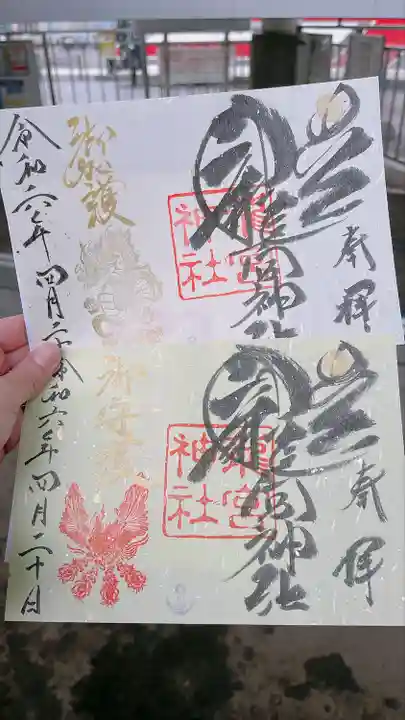 奉拝
龍宮神社
龍宮
神社
御加護
令和六年四月二十
奉拝
龍宮神社
龍宮
神社
御守護
令和六年四月二十日